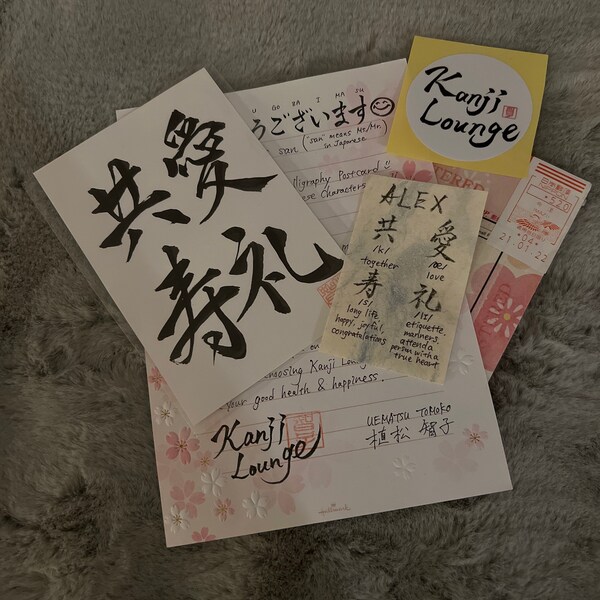 愛礼
共寿
U GO ZA I MA SU
うございます☺
san ("san" means Mr/Mrs
in Japanese
lligraphy Postcard
ese Characters
on
oosing Kanji Loung
your good health & happiness.
Kanji
Lounge
UEMATSU TOMOKO
植松 智子
Hallmark
Kanji
Lounge
ALEX
共 愛
/k/ /æ/
together love
寿 礼
/s/ /lɪ/
long life, etiquette,
happy, joyful, manners,
congratulations attend a
person with a
true heart
21.01.22